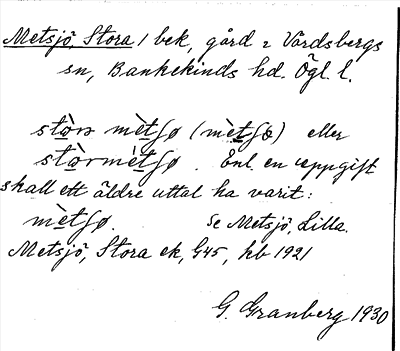 Metsjö, Stora / bek, gård i Vårdsbergs
sn, Bankekinds hd. Ögl. l.
stòrn mètʃø (mètʃœ) eller
stòrmètʃø . Enl. en uppgift
skall ett äldre uttal ha varit:
mètʃø. Se Metsjö, Lilla.
Metsjö, Stora ek, G45, hb 1921
G. Granberg 1930